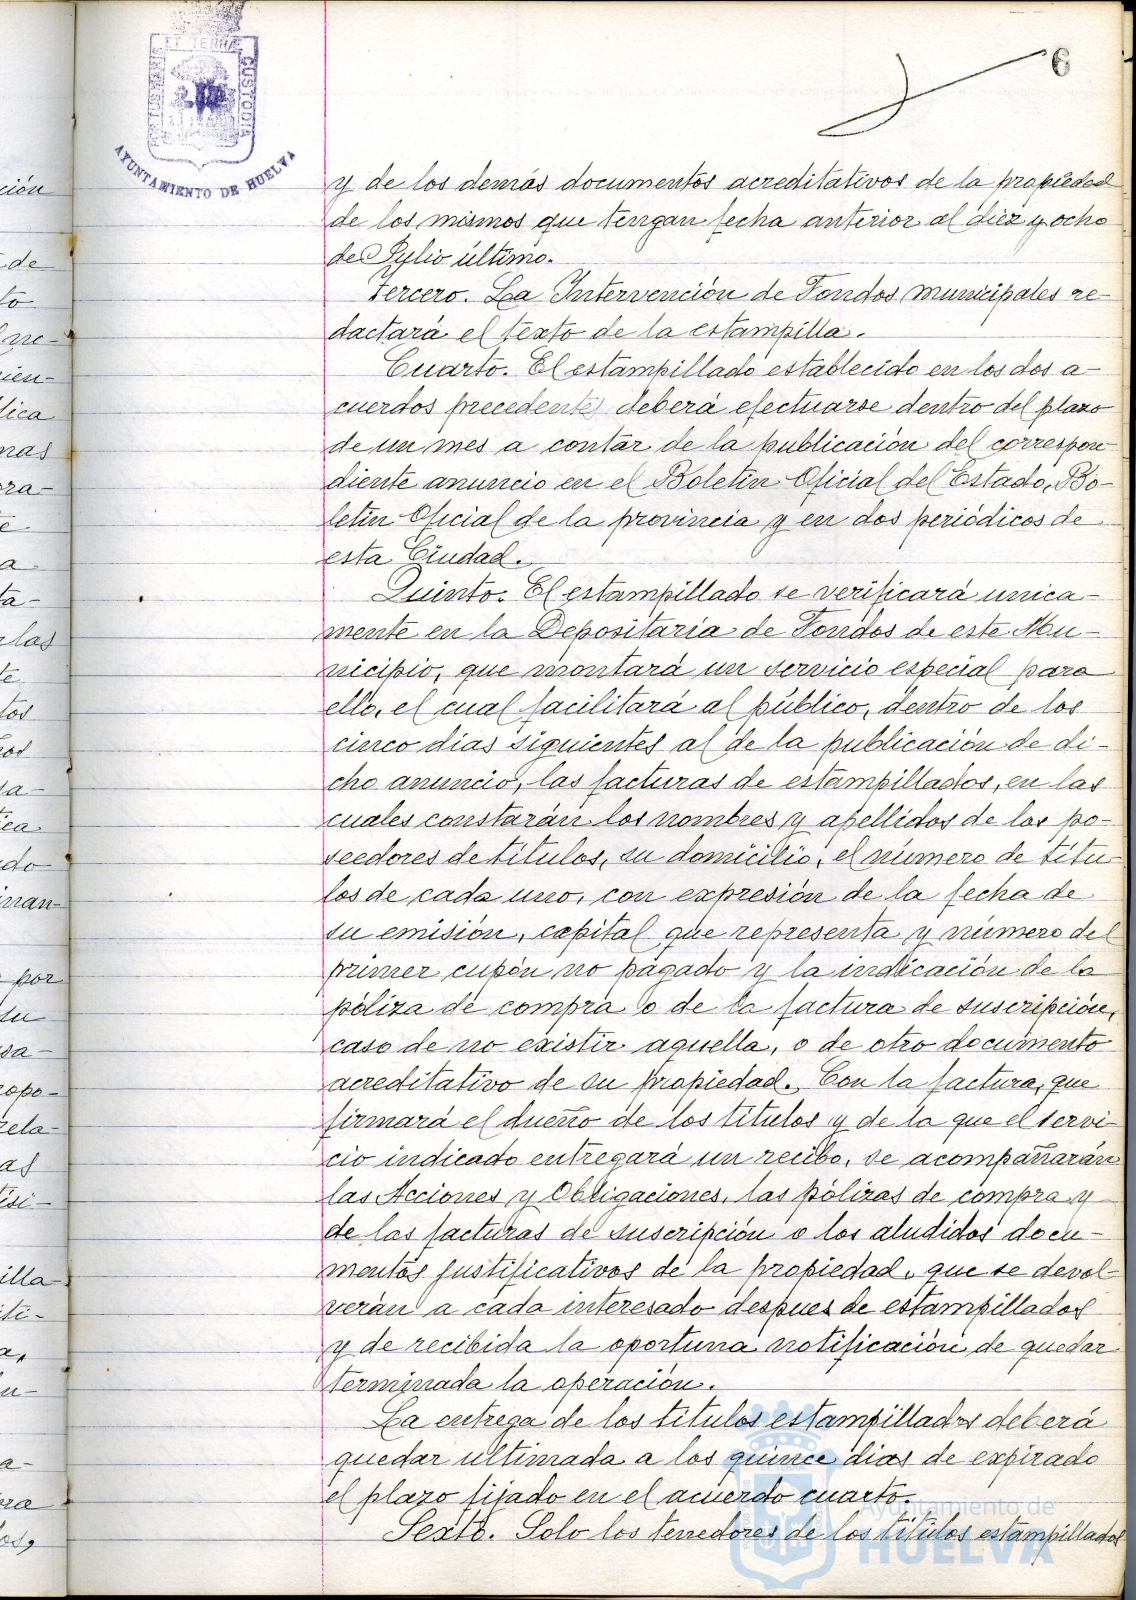 PORTUS MARIS ET TERRÆ CUSTODIA
AYUNTAMIENTO DE HUELVA
6
y de los demás documentos acreditativos de la propiedad
de los mismos que tengan fecha anterior al diez y ocho
de Julio último.
Tercero. La Intervención de Fondos municipales re-
dactará el texto de la estampilla.
Cuarto. El estampillado establecido en los dos a-
cuerdos precedentes deberá efectuarse dentro del plazo
de un mes a contar de la publicación del correspon-
diente anuncio en el Boletín Oficial del Estado, Bo-
letín Oficial de la provincia y en dos periódicos de
esta Ciudad.
Quinto. El estampillado se verificará unica-
mente en la Depositaría de Fondos de este Mu-
nicipio, que montará un servicio especial para
ello, el cual facilitará al público, dentro de los
cinco días siguientes al de la publicación de di-
cho anuncio, las facturas de estampillados, en las
cuales constarán los nombres y apellidos de los po-
seedores de títulos, su domicilio, el número de títu-
los de cada uno, con expresión de la fecha de
su emisión, capital que representa y número del
primer cupón no pagado y la indicación de la
póliza de compra o de la factura de suscripción,
caso de no existir aquella, o de otro documento
acreditativo de su propiedad. Con la factura, que
firmará el dueño de los títulos y de la que el servi-
cio indicado entregará un recibo, se acompañarán
las Acciones y Obligaciones, las pólizas de compra y
de las facturas de suscripción o los aludidos docu-
mentos justificativos de la propiedad, que se devol-
verán a cada interesado despues de estampillados
y de recibida la oportuna notificación de quedar
terminada la operación.
La entrega de los títulos estampillados deberá
quedar ultimada a los quince días de expirado
el plazo fijado en el acuerdo cuarto.
Sexto. Solo los tenedores de los títulos estampillados
Ayuntamiento de
HUELVA